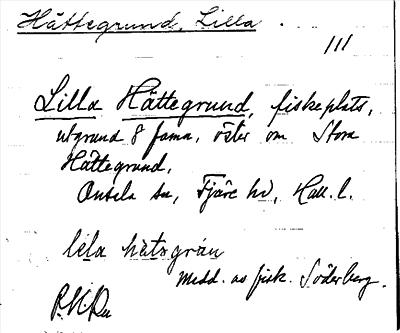 Hättegrund, Lilla.
111
Lilla Hättegrund, fiskeplats,
utgrund 8 famn, öster om Stora
Hättegrund,
Onsala sn, Fjäre hd, Hall. l.
lila hätsgrùn
Medd. av fisk. Söderberg.